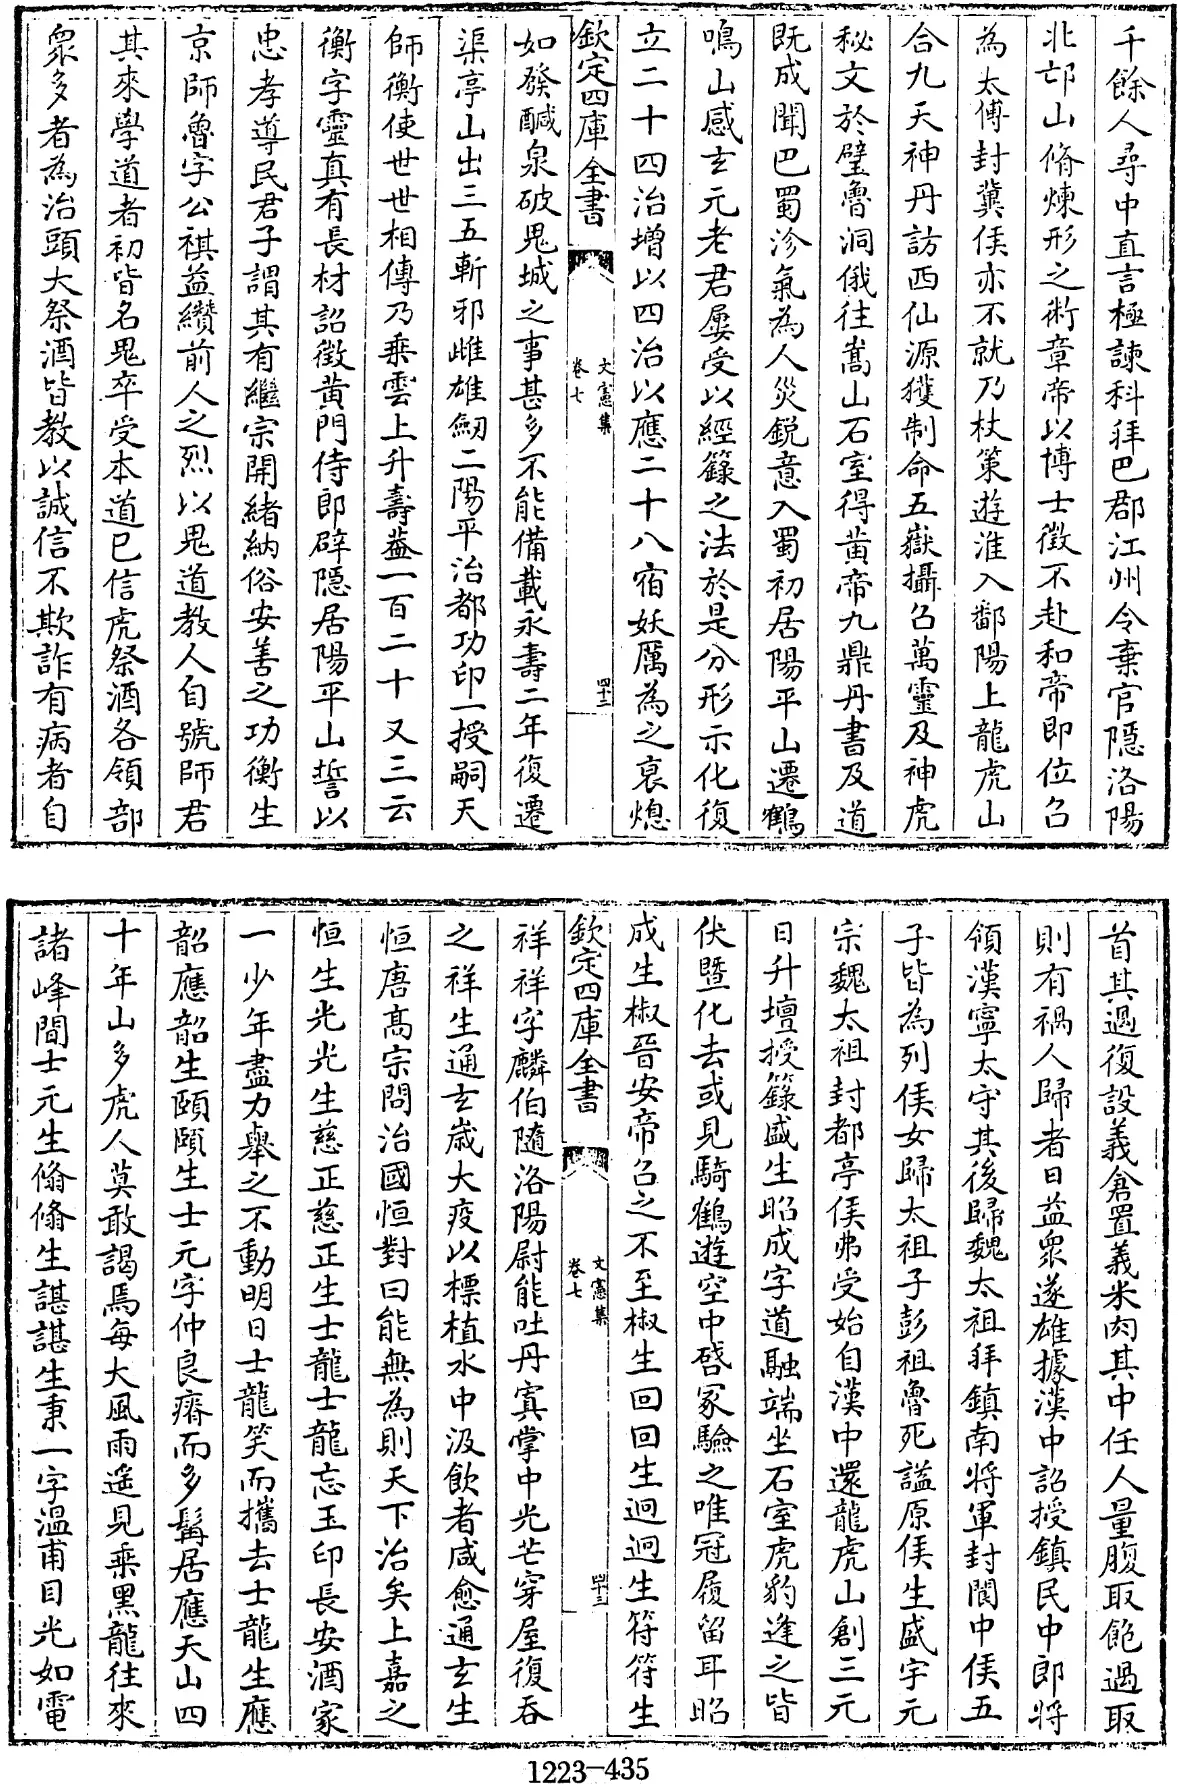 千餘人尋中直言極諫科拜巴郡江州令棄官隱洛陽
北邙山脩煉形之術章帝以博士徵不赴和帝即位召
為太傅封冀侯亦不就乃杖策遊淮入鄱陽上龍虎山
合九天神丹訪西仙源獲制命五嶽攝召萬靈及神虎
秘文於壁魯洞俄往嵩山石室得黃帝九鼎丹書及道
既成聞巴蜀沴氣為人災銳意入蜀初居陽平山遷鶴
鳴山感玄元老君屢受以經籙之法於是分形示化復
立二十四治增以四治以應二十八宿妖厲為之衰熄
欽定四庫全書 文憲集 卷七 四十二
如發鹹泉破鬼城之事甚多不能備載永壽二年復遷
渠亭山出三五斬邪雌雄劒二陽平治都功印一授嗣天
師衡使世世相傳乃乗雲上升壽葢一百二十又三云
衡字靈真有長材詔徵黃門侍郎辟隱居陽平山誓以
忠孝導民君子謂其有繼宗開緒納俗安善之功衡生
京師魯字公祺益纘前人之烈以鬼道教人自號師君
其來學道者初皆名鬼卒受本道已信虎祭酒各領部
衆多者為治頭大祭酒皆教以誠信不欺詐有病者自
首其過復設義倉置義米肉其中任人量腹取飽過取
則有禍人歸者日益衆遂雄據漢中詔授鎮民中郎將
領漢寧太守其後歸魏太祖拜鎮南將軍封閬中侯五
子皆為列侯女歸太祖子彭祖魯死諡原侯生盛字元
宗魏太祖封都亭侯弗受始自漢中還龍虎山創三元
日升壇授籙盛生昭成字道融端坐石室虎豹逢之皆
伏暨化去或見騎鶴遊空中啓冢驗之唯冠履留耳昭
成生椒晉安帝召之不至椒生回回生迥迥生符符生
欽定四庫全書 文憲集 卷七 四十三
祥祥字麟伯隨洛陽尉能吐丹寘掌中光芒穿屋復吞
之祥生通玄歲大疫以標植水中汲飲者咸愈通玄生
恒唐髙宗問治國恒對曰能無為則天下治矣上嘉之
恒生光光生慈正慈正生士龍士龍忘玉印長安酒家
一少年盡力舉之不動明日士龍笑而攜去士龍生應
韶應韶生頤頤生士元字仲良瘠而多髯居應天山四
十年山多虎人莫敢謁焉每大風雨遥見乗黑龍往來
諸峰間士元生脩脩生諶諶生秉一字温甫目光如電
1223-435